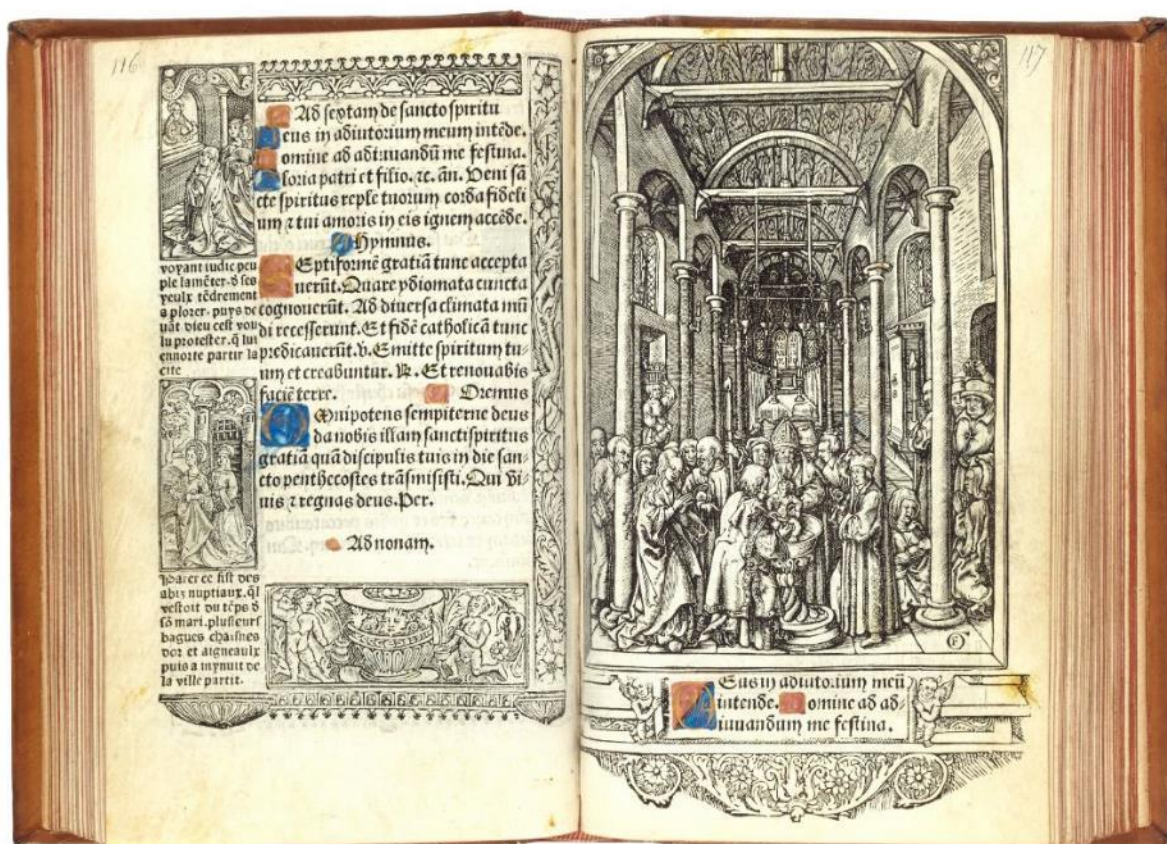 116
Ad sextam de sancto spiritu
Deus in adiutorium meum intẽde.
Domine ad adiuuandũ me festina.
Gloria patri et filio. ⁊c. añ. Veni sã
cte spiritus reple tuorum corda fideli
um ⁊ tui amoris in eis ignem accẽde.
Hymnus.
SEptiformẽ gratiã tunc accepta
uerũt. Quare ydiomata cuncta
cognouerũt. Ad diuersa climata mũ
di recesserunt. Et fidẽ catholicã tunc
predicauerũt. ℣. Emitte spiritum tu-
um et creabuntur. ℟. Et renouabis
faciẽ terre. Oremus
OMnipotens sempiterne deus
da nobis illam sanctispiritus
gratiã quã discipulis tuis in die san-
cto penthecostes trãsmisisti. Qui vi-
uis ⁊ regnas deus. Per.
Ad nonam.
voyant iudic peu
ple lamẽter. ⁊ ses
yeulx tẽdrement
a plorer. puys de
uãt dieu cest vou
lu protester. q̃ lui
ennorte partir la
cite
Parer ce fist des
abiz nuptiaux. q̃l
vestoit du tẽps ⁊
sõ mari. plusieurs
bagues chaisnes
dor et aigneaulx
puis a mynuit de
la ville partit.
117
GF
DEus in adiutorium meũ
intende. Domine ad ad-
iuuandum me festina.